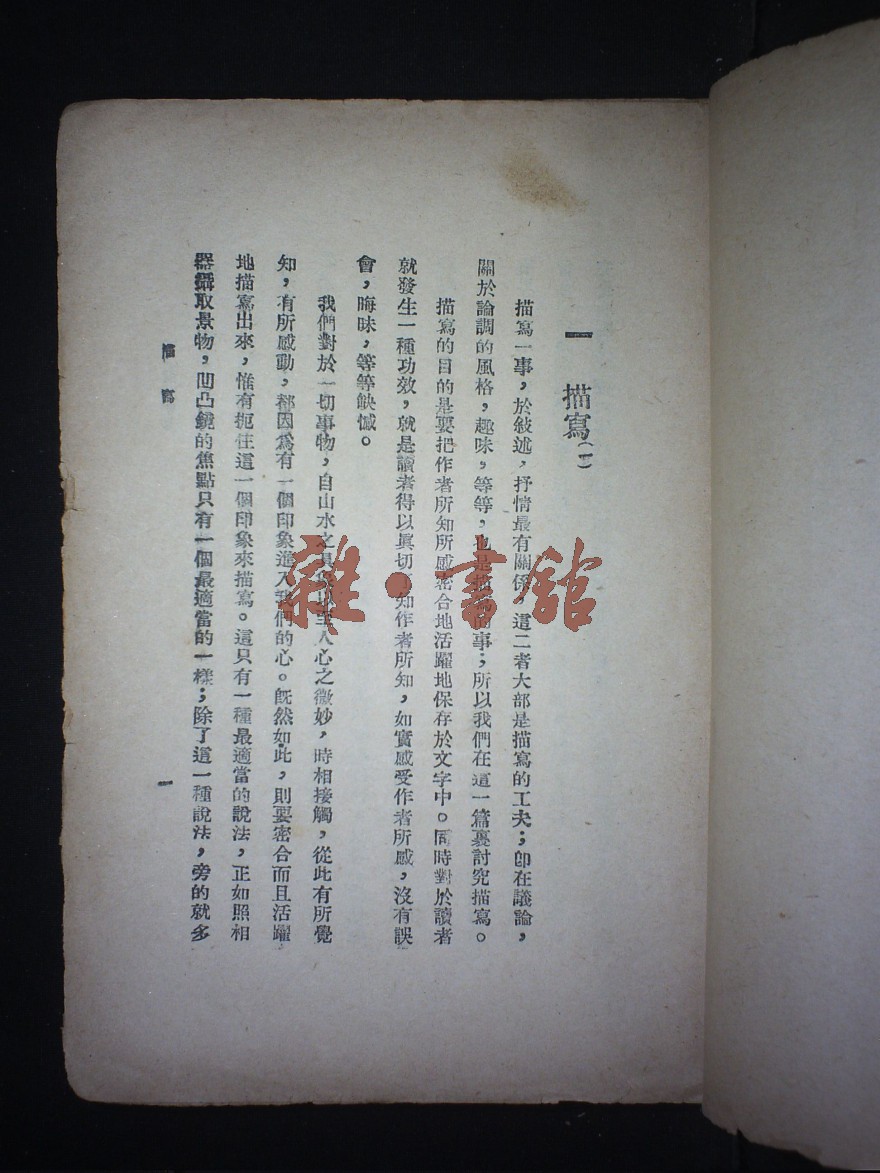 一 描寫(一)
描寫一事，於敍述，抒情最有關係，這二者大部是描寫的工夫；卽在議論，
關於論調的風格，趣味，等等，也是描寫的事；所以我們在這一篇裏討究描寫。
描寫的目的是要把作者所知所感密合地活躍地保存於文字中。同時對於讀者
就發生一種功效，就是讀者得以眞切知作者所知，如實感受作者所感，沒有誤
會，晦昧，等等缺憾。
我們對於一切事物，自山水之具至人心之微妙，時相接觸，從此有所覺
知，有所感動，都因爲有一個印象進入我們的心。旣然如此，則要密合而且活躍
地描寫出來，惟有扼住這一個印象來描寫。這只有一種最適當的說法，正如照相
器攝取景物，凹凸鏡的焦點只有一個最適當的一樣；除了這一種說法，旁的就多
描寫
一
雜·書館